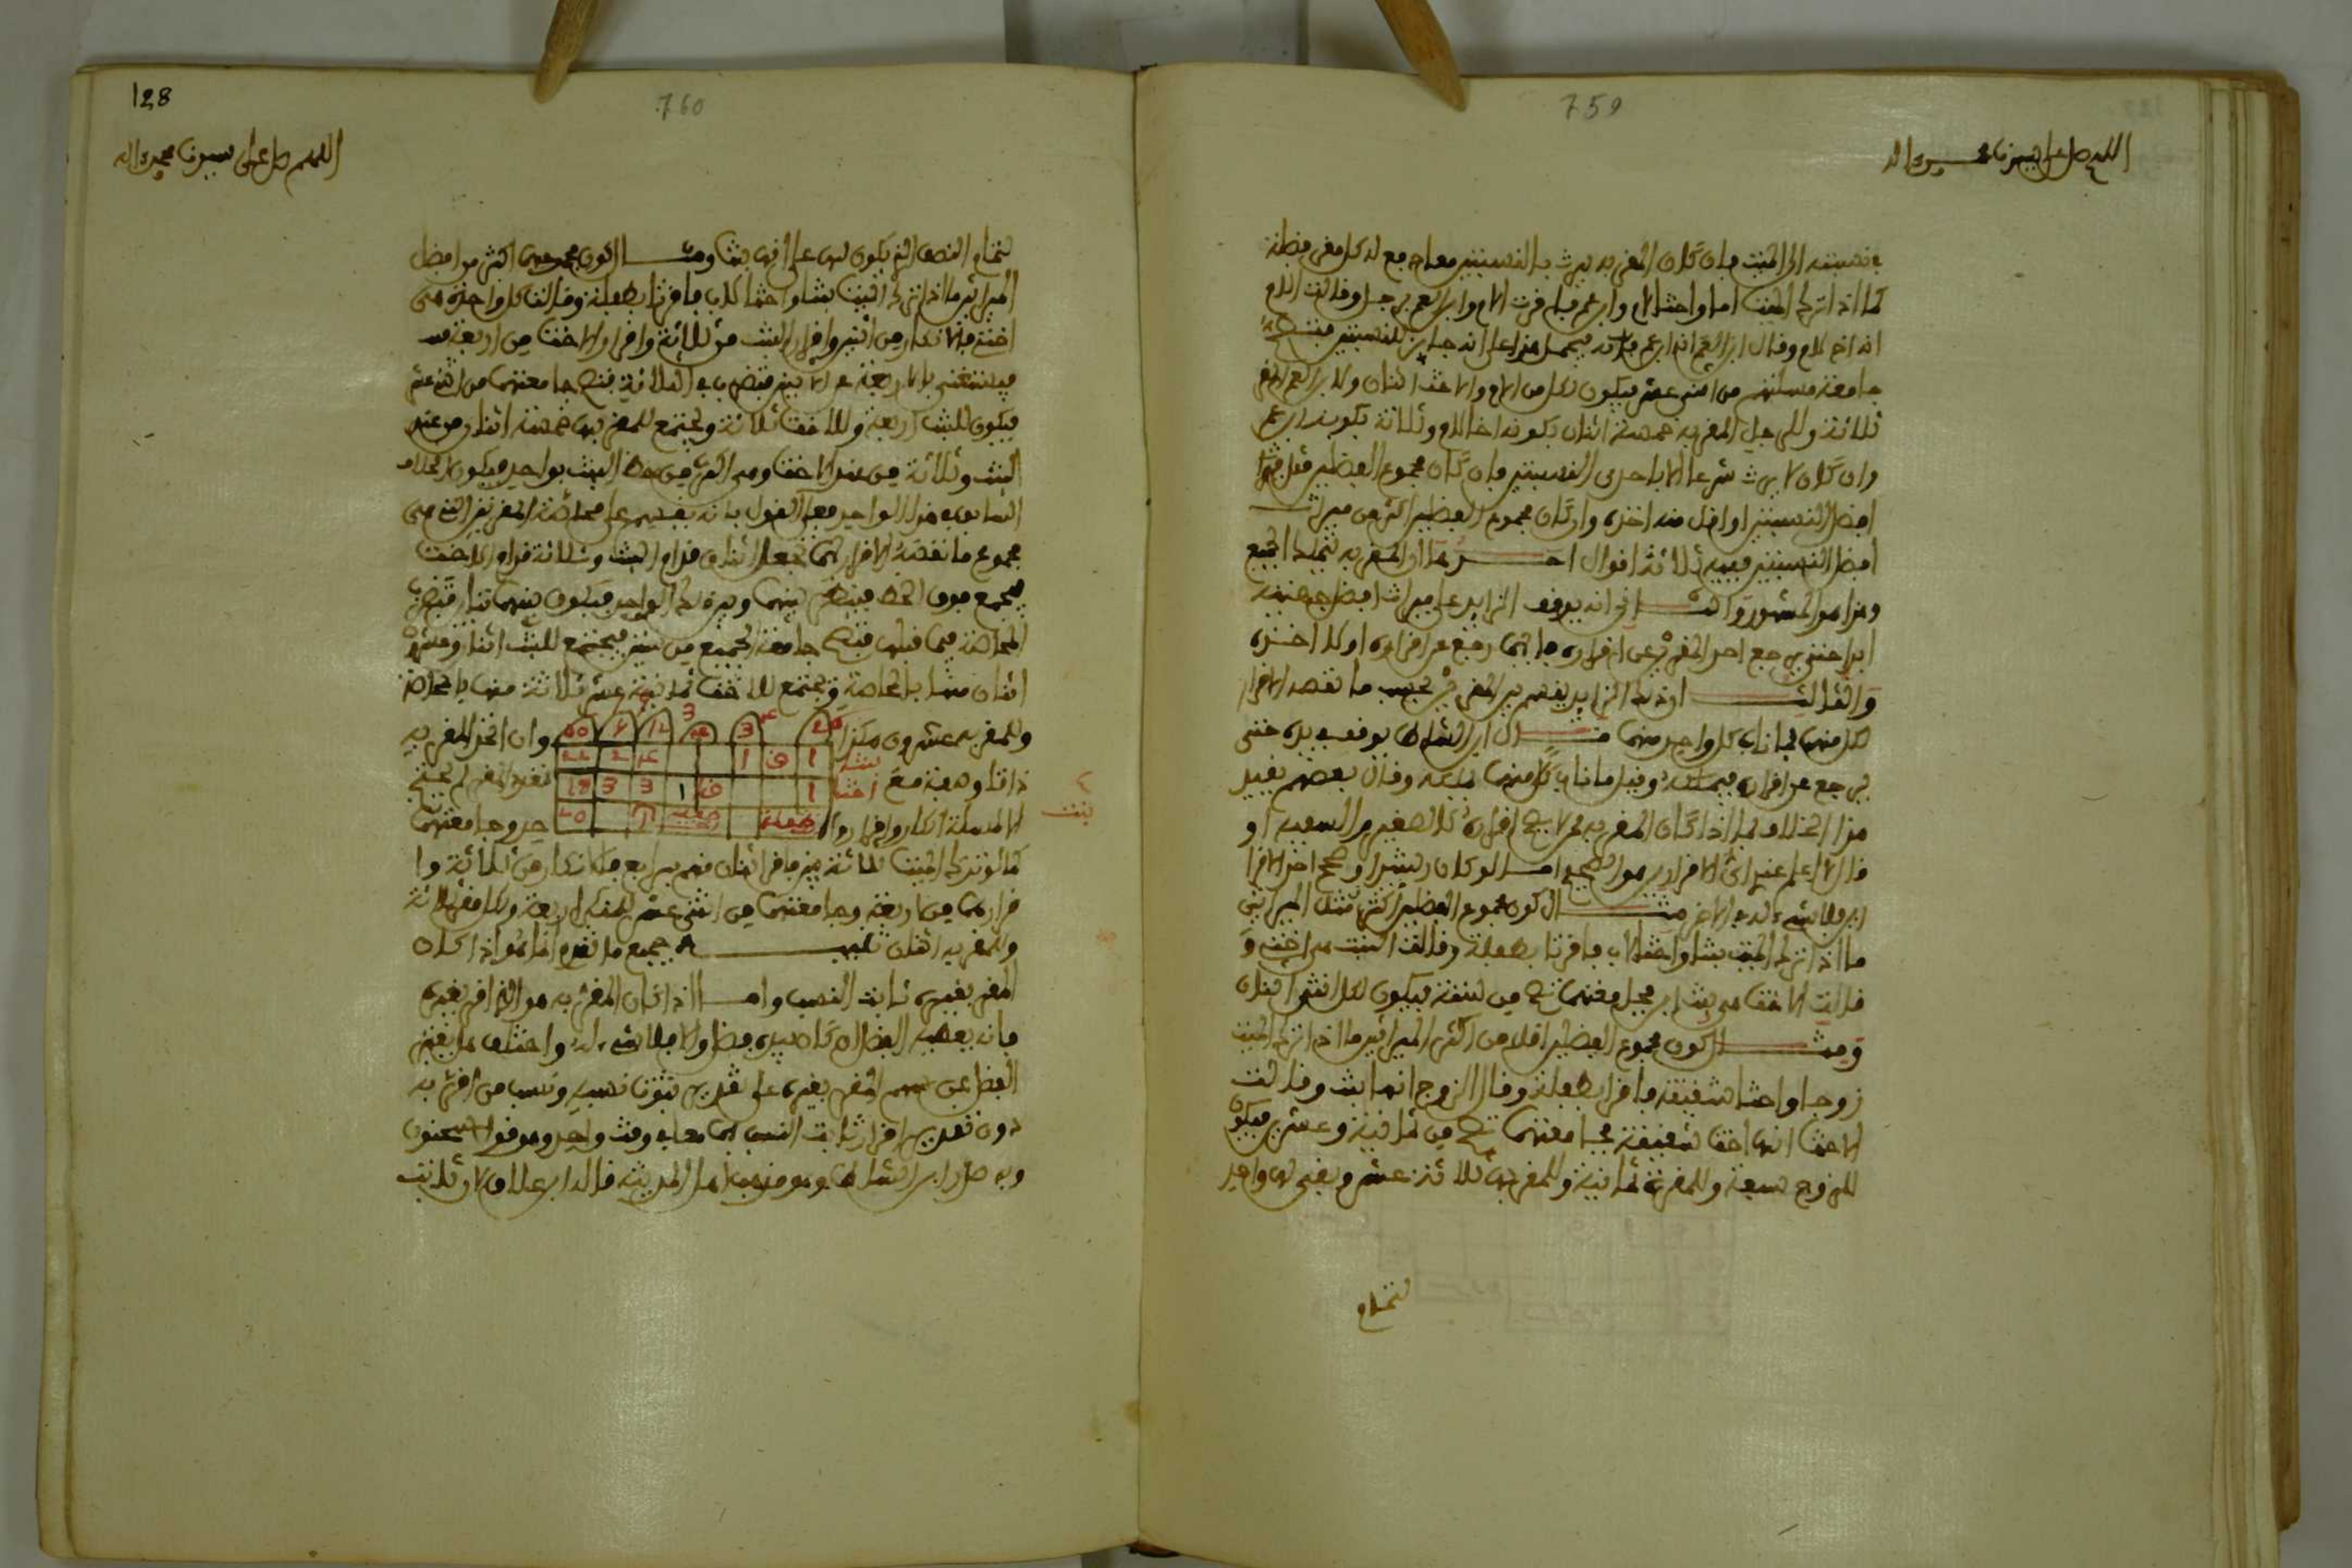 759
اللهم صل على سيدنا محمد واله
بنسبته الى الميت فان كان المقر به يرث بالنسبتين معا جمع له كل مقر فضله
كما اذا ترك الميت اما واختا لام وابن عم فاقرت الام وابن العم برجل وقالت الام
انه اخ لام وقال ابن العم انه ابن عم فانه يحمل هذا على انه جائز للنسبتين فتصح
جامعة مسئلتهم من اثني عشر فيكون لكل من الام والاخت اثنان ولابن العم المقر
ثلاثة وللرجل المقر به خمسة اثنان بكونه اخا للام وثلاثة بكونه ابن عم
وان كان لا يرث شرعا الا باحدى النسبتين فان كان مجموع الفضلين مثل ميراث
افضل النسبتين او اقل منه اخذه وان كان مجموع الفضلين اكثر من ميراث
افضل النسبتين ففيه ثلاثة اقوال احدها ان المقر به يتملك الجميع
وهذا هو المشهور والثاني انه يوقف الزايد على ميراث افضل جهتيه
ابدا حتى يرجع احد المقرين عن اقراره فايهما رجع عن اقراره اولا اخذه
والثالث ان ذلك الزايد يقسم بين المقرين بحسب ما نقصه الاقرار
لكل منهما فما ناب كل واحد منهما قال ابن الشاط يوقف بيده حتى
يرجع عن اقراره فيملكه وقيل ما ناب كلا منهما ملكه وقال بعضهم يقيد
هذا الخلاف بما اذا كان المقر به ممن لا يصح اقراره كالصغير والسفيه او
قال لا علم عندي اي الاقرارين هو الصحيح اما لو كان رشيدا وصحح احد الاقرا
رين فلا شيء له في الاخر مثال كون مجموع الفضلين اكثر مثل الميراثين
ما اذا ترك الميت بنتا واختا لاب فاقرتا بطفلة وقالت البنت هي اختي و
قالت الاخت هي بنت ابي فجامعتهما تصح من ستة فيكون لكل انثى اثنان
ومثال كون مجموع الفضلين اقل من اكثر الميراثين ما اذا ترك الميت
زوجا واختا شقيقة فاقرا بطفلة وقال الزوج انها بنت وقالت
الاخت انها اخت شقيقة فجامعتهما تصح من ثمانية وعشرين فيكون
للزوج سبعة وللمقرة ثمانية وللمقر بها ثلاثة عشر وبقي لها واحد
لتمام
128
760
اللهم صل على سيدنا محمد واله
لتمام النصف الذي يكون لها على انها بنت ومثال كون مجموعهما اكثر من افضل
الميراثين ما اذا ترك الميت بنتا واختا لاب فاقرتا بطفلة وقالت كل واحدة هي
اختي فالانكار من اثنين واقرار البنت من ثلاثة واقرار الاخت من اربعة
فيستغنى بالاربعة عن الاثنين فتضرب في الثلاثة فتصح جامعتهما من اثني عشر
فيكون للبنت اربعة وللاخت ثلاثة ويجتمع للمقر بها خمسة اثنان من عند
البنت وثلاثة من عند الاخت وهي اكثر من حظ البنت بواحد فيكون الخلاف
السابق في هذا الواحد فعلى القول بانه يقسم على محاصة المقرتين التي هي
مجموع ما نقصه الاقرار لهما تجعل اثنان قدام البنت وثلاثة قدام الاخت
فيجمع فوق الخط فينظر بينها وبين ذلك الواحد فيكون بينهما تباين فتضرب
المحاصة فيما قبلها فتصح جامعة الجميع من ستين فيجتمع للبنت اثنان وعشرون
اثنان منها بالمحاصة ويجتمع للاخت ثمانية عشر ثلاثة منها بالمحاصة
وللمقر به عشرون هكذا
وان اتحد المقر به
بنت
ذاتا ونسبة مع
اختا
تعدد المقر لم يحتج
الا لمسئلة انكار واقرار واحد وجامعتهما
طفلة
بنت
كما لو ترك الميت ثلاثة بنين فاقر اثنان منهم برابع فالانكار من ثلاثة وا
قرارهما من اربعة وجامعتهما من اثني عشر للمنكر اربعة ولكل مقر ثلاثة
وللمقر به اثنان تنبيه جميع ما تقدم انما هو اذا كان
المقر بغيره ثابت النسب واما اذا كان المقر به هو الذي اقر بغيره
فانه يعطيه الفضل ان كان بيده فضل والا فلا شيء له واختلف هل يعتبر
الفضل عن سهم المقر بغيره على تقدير ثبوت نسبه ونسب من اقر به
دون تقدير اقرار ثابت النسب بهما معا في وقت واحد وهو قول سحنون
وبه صدر ابن الشاط وهو مذهب اهل المدينة قال ابن علاق لان ثابت